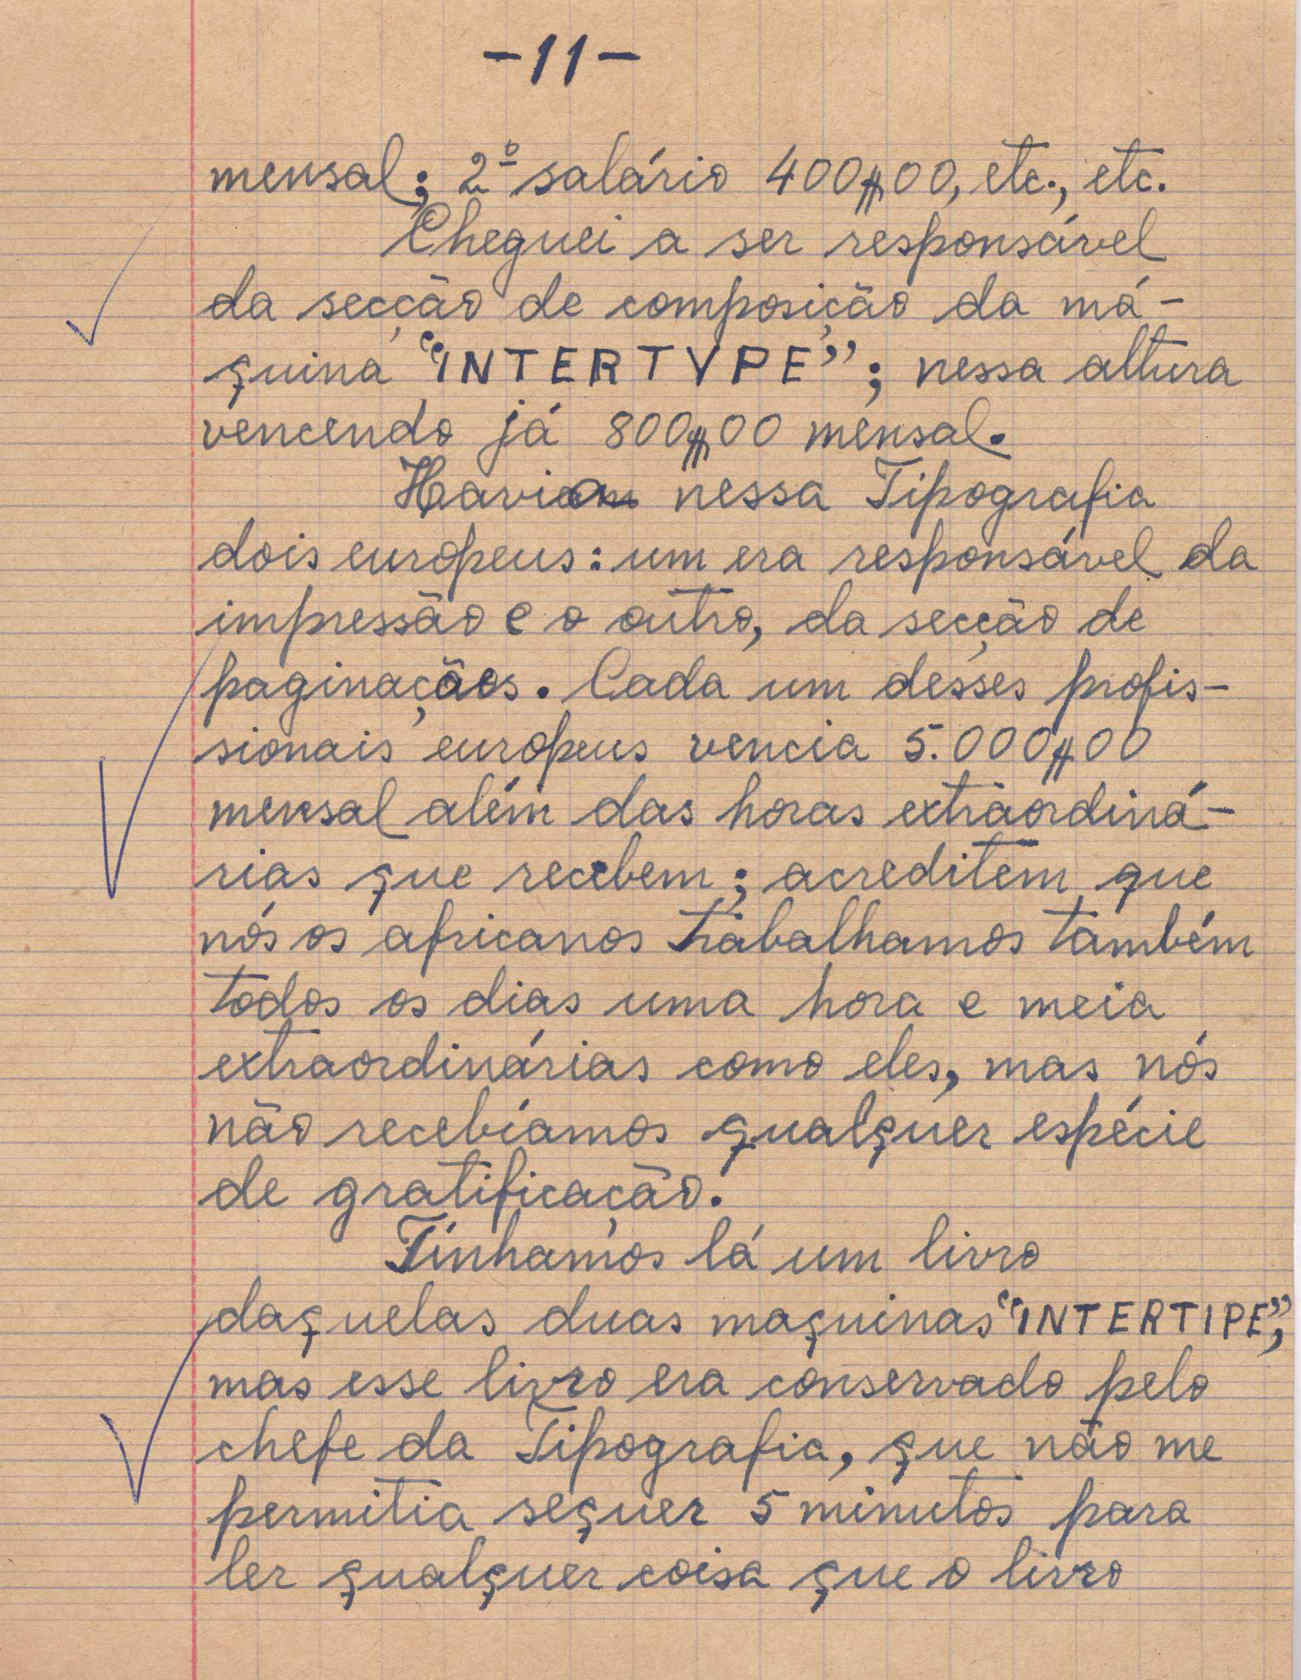 -11-
mensal; 2º salário 400$00, etc., etc.
Cheguei a ser responsável
da secção de composição da má-
quina "INTERTYPE"; nessa altura
vencendo já 800$00 mensal.
Haviam nessa Tipografia
dois europeus: um era responsável da
impressão e o outro, da secção de
paginaçãos. Cada um desses profis-
sionais europeus vencia 5.000$00
mensal além das horas extraordiná-
rias que recebem; acreditem que
nós os africanos trabalhamos também
todos os dias uma hora e meia
extraordinárias como eles, mas nós
não recebíamos qualquer espécie
de gratificação.
Tínhamos lá um livro
daquelas duas maquinas "INTERTIPE",
mas esse livro era conservado pelo
chefe da Tipografia, que não me
permitia sequer 5 minutos para
ler qualquer coisa que o livro